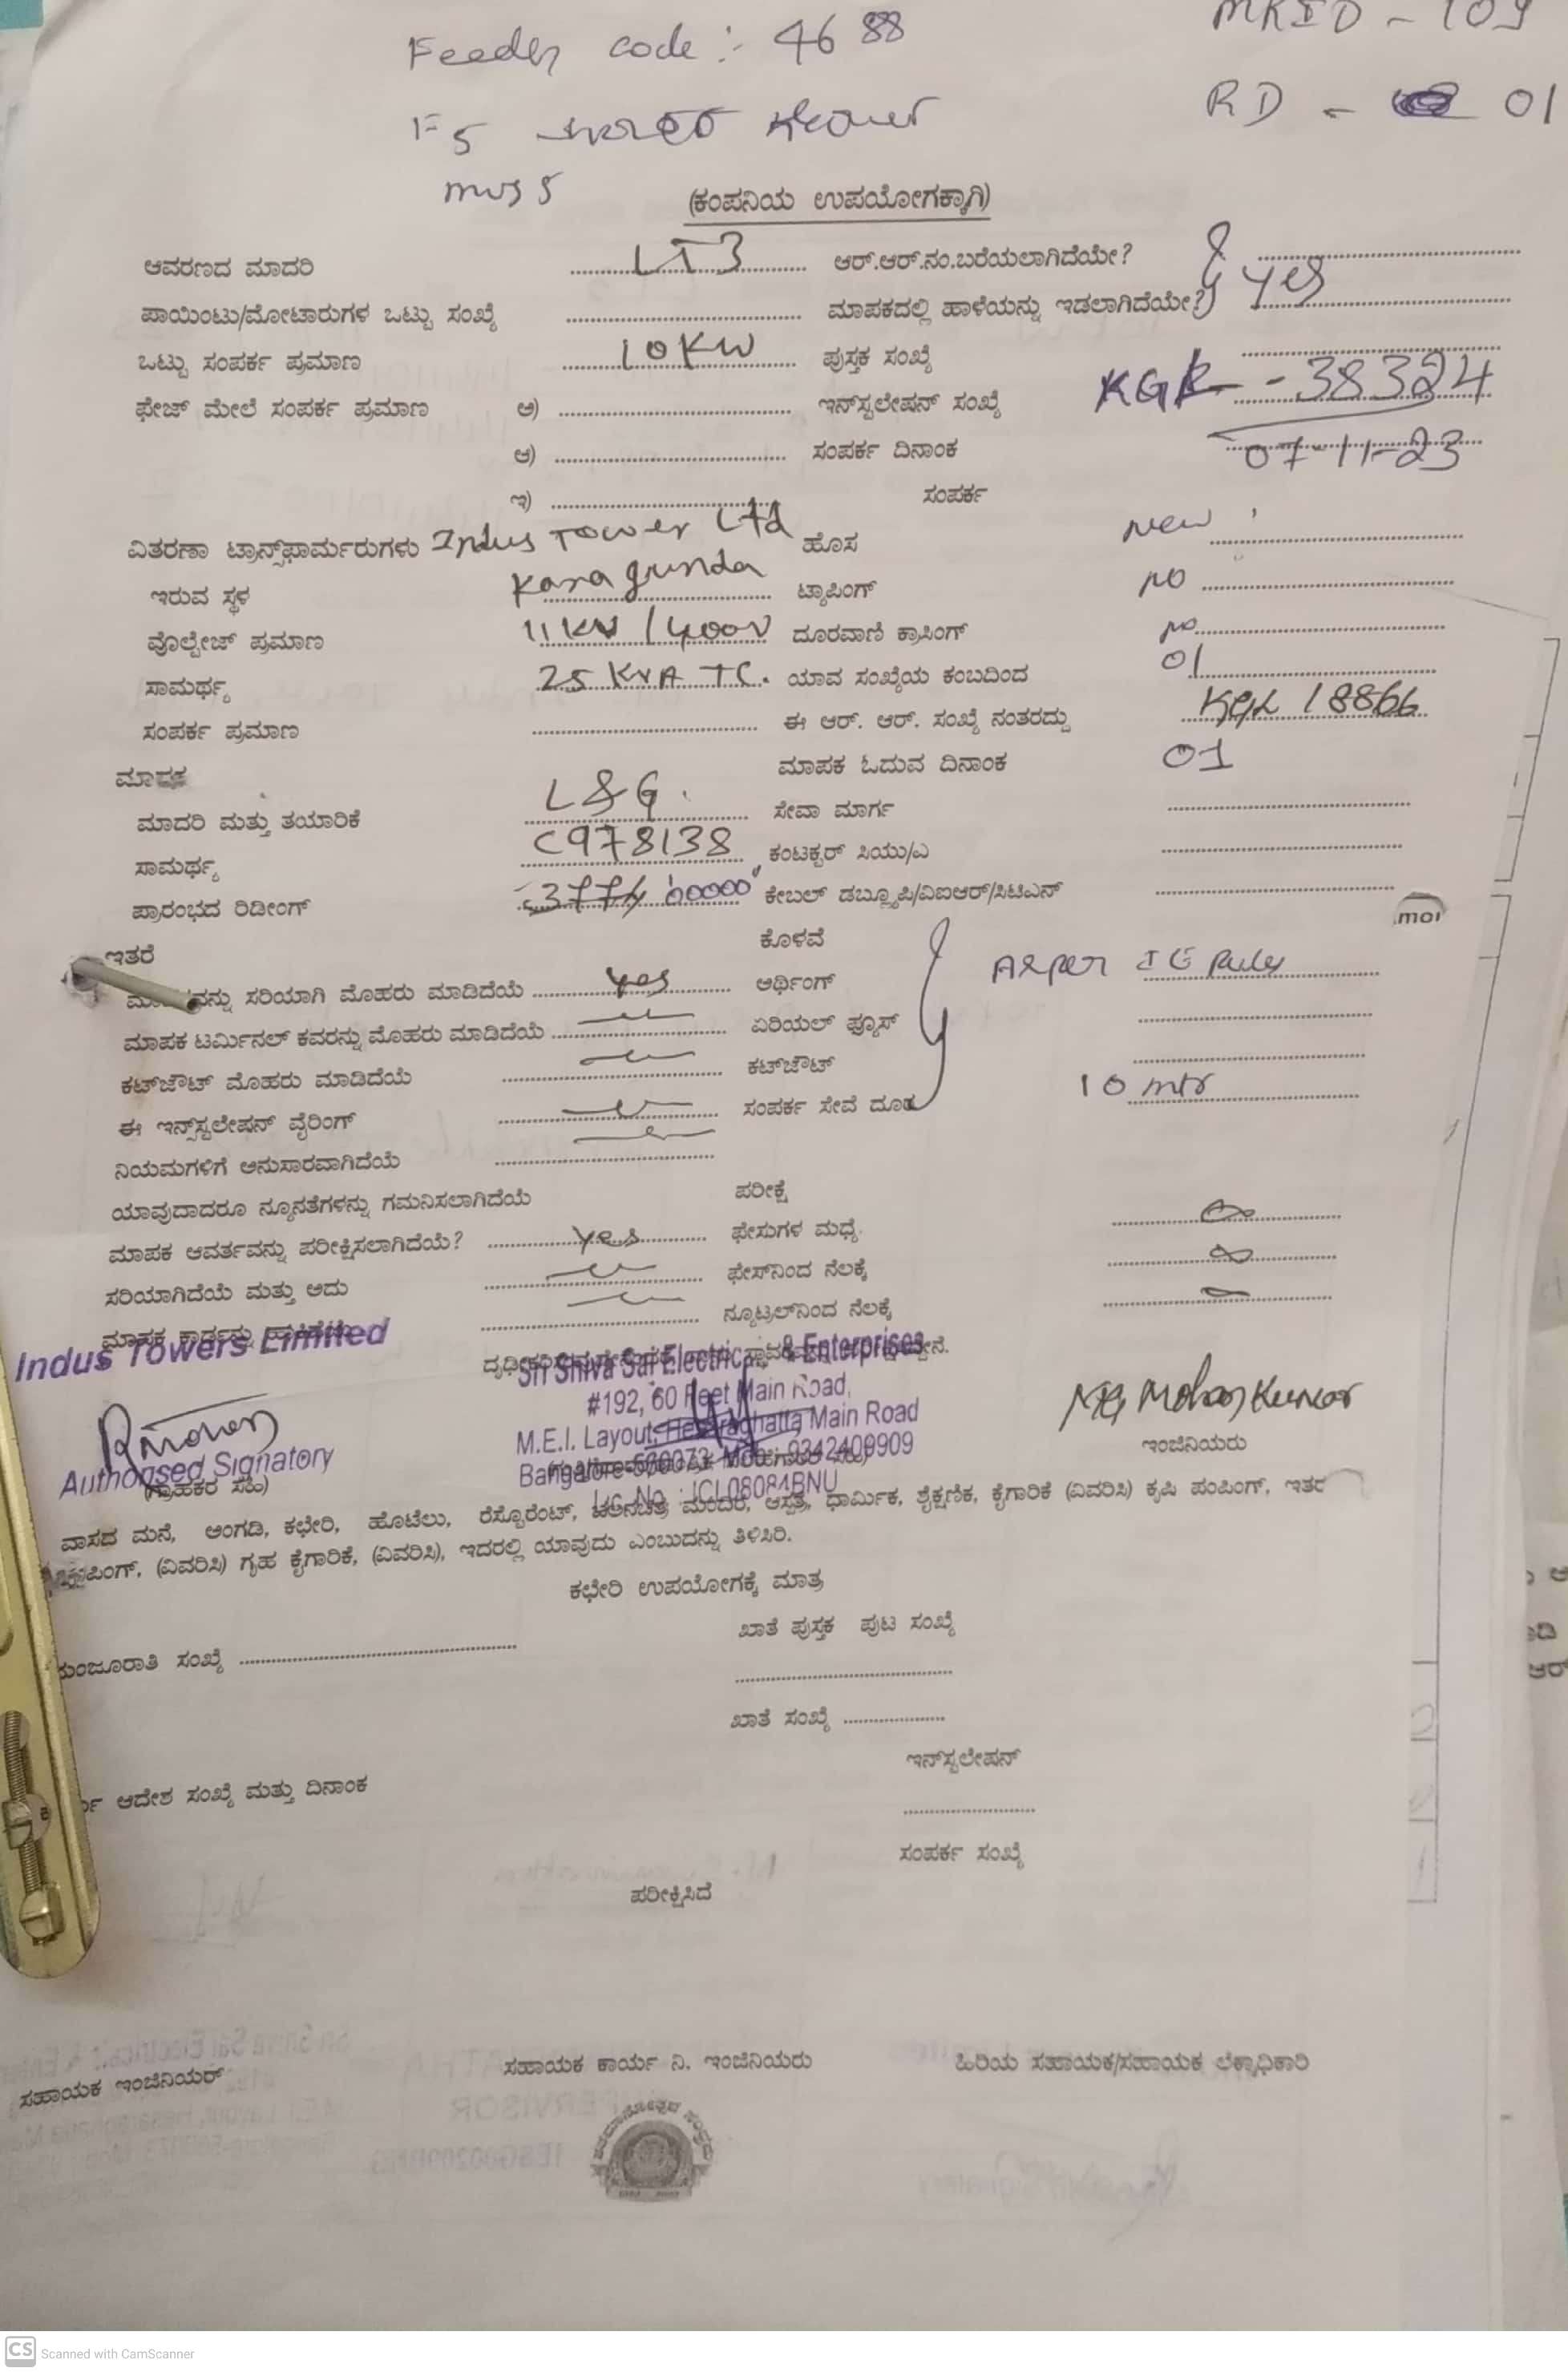 Feeder code :- 4688
MRID - 109
F5
RD - 01
muss
(ಕಂಪನಿಯ ಉಪಯೋಗಕ್ಕಾಗಿ)
ಆವರಣದ ಮಾದರಿ LT3 ಆರ್.ಆರ್.ನಂ.ಬರೆಯಲಾಗಿದೆಯೇ?
ಪಾಯಿಂಟು/ಮೋಟಾರುಗಳ ಒಟ್ಟು ಸಂಖ್ಯೆ ಮಾಪಕದಲ್ಲಿ ಹಾಳೆಯನ್ನು ಇಡಲಾಗಿದೆಯೇ? yes
ಒಟ್ಟು ಸಂಪರ್ಕ ಪ್ರಮಾಣ 10KW ಪುಸ್ತಕ ಸಂಖ್ಯೆ
ಫೇಜ್ ಮೇಲೆ ಸಂಪರ್ಕ ಪ್ರಮಾಣ ಅ) ಇನ್‌ಸ್ಟಲೇಷನ್ ಸಂಖ್ಯೆ KGL - 38324
ಆ) ಸಂಪರ್ಕ ದಿನಾಂಕ 07-11-23
ಇ) ಸಂಪರ್ಕ
ವಿತರಣಾ ಟ್ರಾನ್ಸ್‌ಫಾರ್ಮರುಗಳು Indus Tower Ltd ಹೊಸ New
ಇರುವ ಸ್ಥಳ Karagunda ಟ್ಯಾಪಿಂಗ್ no
ವೊಲ್ಟೇಜ್ ಪ್ರಮಾಣ 11KV/400V ದೂರವಾಣಿ ಕ್ರಾಸಿಂಗ್ no
ಸಾಮರ್ಥ್ಯ 25 KVA TC. ಯಾವ ಸಂಖ್ಯೆಯ ಕಂಬದಿಂದ 01
ಸಂಪರ್ಕ ಪ್ರಮಾಣ ಈ ಆರ್. ಆರ್. ಸಂಖ್ಯೆ ನಂತರದ್ದು KGL 18866
ಮಾಪಕ ಮಾಪಕ ಓದುವ ದಿನಾಂಕ 01
ಮಾದರಿ ಮತ್ತು ತಯಾರಿಕೆ L&G. ಸೇವಾ ಮಾರ್ಗ
ಸಾಮರ್ಥ್ಯ C978138 ಕಂಟಕ್ಟರ್ ಸಿಯು/ಎ
ಪ್ರಾರಂಭದ ರಿಡೀಂಗ್ 00000 ಕೇಬಲ್ ಡಬ್ಲ್ಯೂಪಿ/ವಿಐಆರ್/ಸಿಟಿಎಸ್
ಇತರೆ ಕೊಳವೆ
ಸರಿಯಾಗಿ ಮೊಹರು ಮಾಡಿದೆಯೆ yes ಅರ್ಥಿಂಗ್ As per IE Rules
ಮಾಪಕ ಟರ್ಮಿನಲ್ ಕವರನ್ನು ಮೊಹರು ಮಾಡಿದೆಯೆ ಏರಿಯಲ್ ಫ್ಯೂಸ್
ಕಟ್‌ಔಟ್ ಮೊಹರು ಮಾಡಿದೆಯೆ ಕಟ್‌ಔಟ್
ಈ ಇನ್ಸ್‌ಸ್ಟಲೇಷನ್ ವೈರಿಂಗ್ ಸಂಪರ್ಕ ಸೇವೆ ದೂರ 10 mtr
ನಿಯಮಗಳಿಗೆ ಅನುಸಾರವಾಗಿದೆಯೆ
ಯಾವುದಾದರೂ ನ್ಯೂನತೆಗಳನ್ನು ಗಮನಿಸಲಾಗಿದೆಯೆ ಪರೀಕ್ಷೆ
ಮಾಪಕ ಆವರ್ತವನ್ನು ಪರೀಕ್ಷಿಸಲಾಗಿದೆಯೆ? yes ಫೇಸುಗಳ ಮಧ್ಯೆ
ಸರಿಯಾಗಿದೆಯೆ ಮತ್ತು ಅದು ಫೇಸ್‌ನಿಂದ ನೆಲಕ್ಕೆ
ಮಾಪಕ ಕಾರ್ಡನ್ನು ನ್ಯೂಟ್ರಲ್‌ನಿಂದ ನೆಲಕ್ಕೆ
Indus Towers Limited
Sri Shiva Sai Electricals & Enterprises
#192, 60 Feet Main Road,
M.E.I. Layout, Hesaraghatta Main Road
Bangalore-560073 Mob : 9342409909
Lic No : ICL08084BNU
Mohan Kumar
ಇಂಜಿನಿಯರು
Authorised Signatory
(ಗ್ರಾಹಕರ ಸಹಿ)
ವಾಸದ ಮನೆ, ಅಂಗಡಿ, ಕಛೇರಿ, ಹೊಟೆಲು, ರೆಸ್ಟೊರೆಂಟ್, ಚಲನಚಿತ್ರ ಮಂದಿರ, ಆಸ್ಪತ್ರೆ, ಧಾರ್ಮಿಕ, ಶೈಕ್ಷಣಿಕ, ಕೈಗಾರಿಕೆ (ವಿವರಿಸಿ) ಕೃಷಿ ಪಂಪಿಂಗ್, ಇತರ
(ವಿವರಿಸಿ) ಗೃಹ ಕೈಗಾರಿಕೆ, (ವಿವರಿಸಿ), ಇದರಲ್ಲಿ ಯಾವುದು ಎಂಬುದನ್ನು ತಿಳಿಸಿರಿ.
ಕಛೇರಿ ಉಪಯೋಗಕ್ಕೆ ಮಾತ್ರ
ಖಾತೆ ಪುಸ್ತಕ ಪುಟ ಸಂಖ್ಯೆ
ಮಂಜೂರಾತಿ ಸಂಖ್ಯೆ
ಖಾತೆ ಸಂಖ್ಯೆ
ಇನ್‌ಸ್ಟಲೇಷನ್
ಆದೇಶ ಸಂಖ್ಯೆ ಮತ್ತು ದಿನಾಂಕ
ಸಂಪರ್ಕ ಸಂಖ್ಯೆ
ಪರೀಕ್ಷಿಸಿದೆ
ಸಹಾಯಕ ಇಂಜಿನಿಯರ್ ಸಹಾಯಕ ಕಾರ್ಯ ನಿ. ಇಂಜಿನಿಯರು ಹಿರಿಯ ಸಹಾಯಕ/ಸಹಾಯಕ ಲೆಕ್ಕಾಧಿಕಾರಿ
CS Scanned with CamScanner